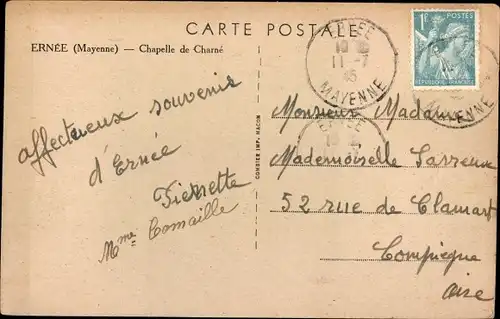 CARTE POSTALE
ERNÉE (Mayenne) — Chapelle de Charné
affectueux souvenir
d'Ernée
Pierrette
Mme Comaille
COURIER IMP. MACON
10
11-7
45
MAYENNE
1F POSTES
RÉPUBLIQUE FRANÇAISE
Monsieur Madame
Mademoiselle
52 rue de Clamart
Compiègne
Oise